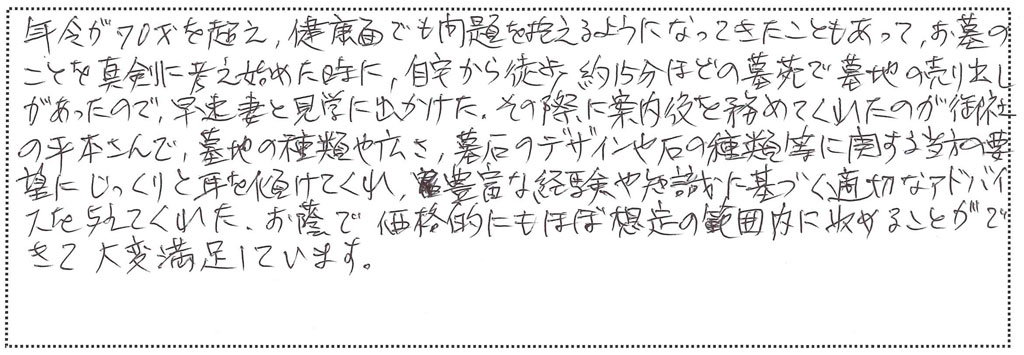 年令が70才を超え,健康面でも問題を抱えるようになってきたこともあって,お墓の
ことを真剣に考え始めた時に,自宅から徒歩約15分ほどの墓苑で墓地の売り出し
があったので,早速妻と見学に出かけた.その際に案内役を務めてくれたのが御社
の平本さんで,墓地の種類や広さ,墓石のデザインや石の種類等に関する当方の要
望にじっくりと耳を傾けてくれ,豊富な経験や知識に基づく適切なアドバイ
スを与えてくれた.お蔭で価格的にもほぼ想定の範囲内に収めることがで
きて大変満足しています。